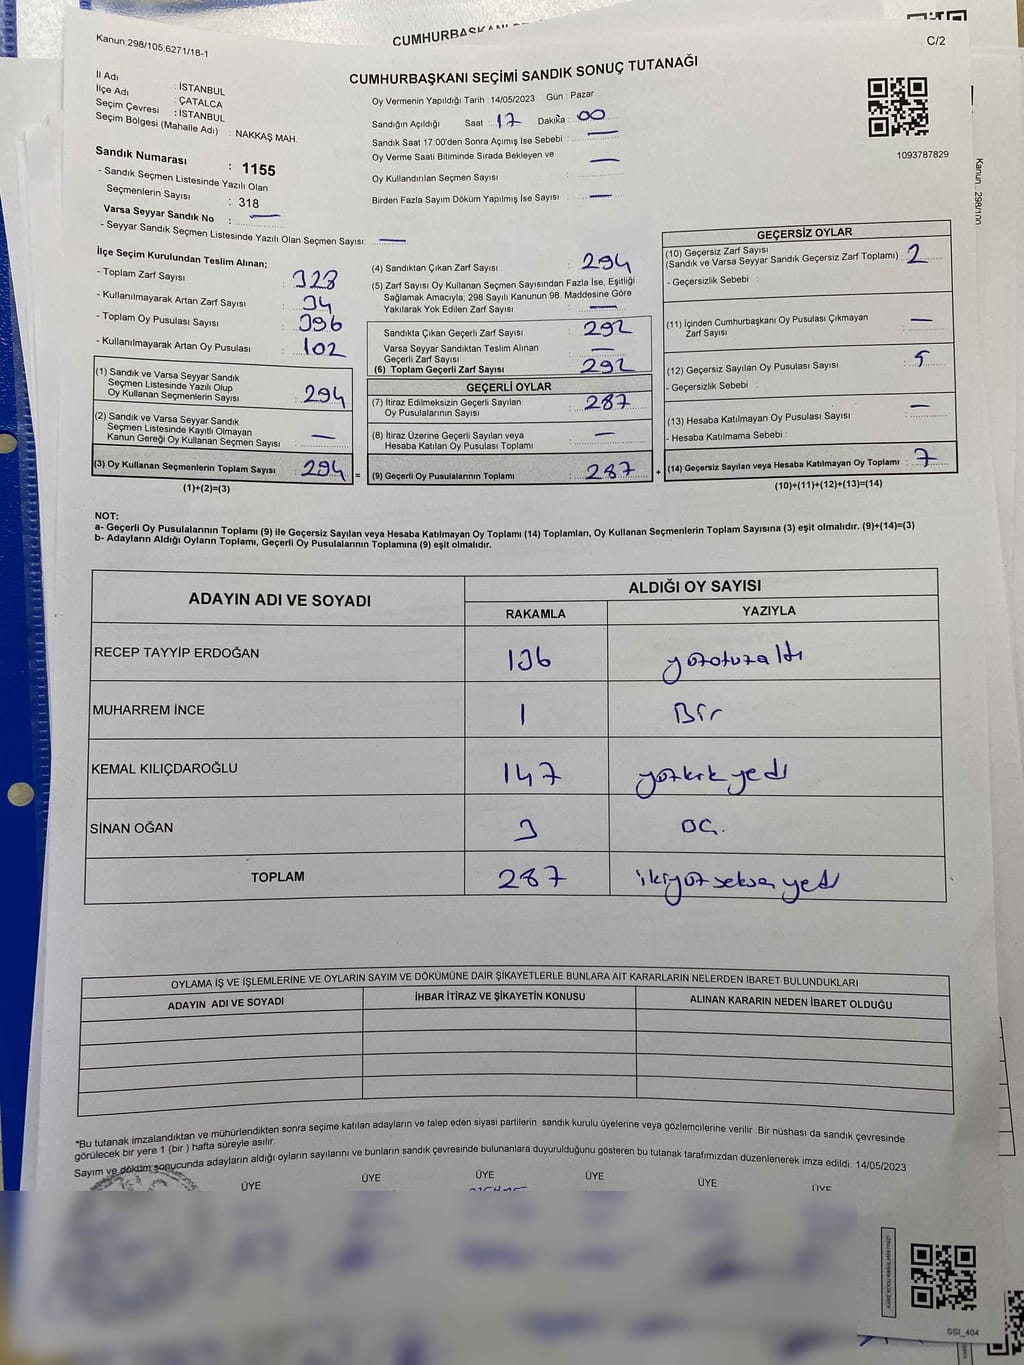 CUMHURBAŞKANI
Kanun:298/105;6271/18-1
C/2
CUMHURBAŞKANI SEÇİMİ SANDIK SONUÇ TUTANAĞI
İl Adı : İSTANBUL
İlçe Adı : ÇATALCA
Seçim Çevresi : İSTANBUL
Seçim Bölgesi (Mahalle Adı) : NAKKAŞ MAH.
Oy Vermenin Yapıldığı Tarih : 14/05/2023 Gün : Pazar
Sandığın Açıldığı Saat : 17 Dakika : 00
Sandık Saat 17.00'den Sonra Açımış İse Sebebi : —
Oy Verme Saati Bitiminde Sırada Bekleyen ve
Oy Kullandırılan Seçmen Sayısı : —
Birden Fazla Sayım Döküm Yapılmış İse Sayısı : —
1093787829
Kanun : 298/100
Sandık Numarası : 1155
- Sandık Seçmen Listesinde Yazılı Olan
Seçmenlerin Sayısı : 318
Varsa Seyyar Sandık No : —
- Seyyar Sandık Seçmen Listesinde Yazılı Olan Seçmen Sayısı: —
İlçe Seçim Kurulundan Teslim Alınan;
- Toplam Zarf Sayısı : 328
- Kullanılmayarak Artan Zarf Sayısı : 34
- Toplam Oy Pusulası Sayısı : 396
- Kullanılmayarak Artan Oy Pusulası : 102
(1) Sandık ve Varsa Seyyar Sandık
Seçmen Listesinde Yazılı Olup
Oy Kullanan Seçmenlerin Sayısı : 294
(2) Sandık ve Varsa Seyyar Sandık
Seçmen Listesinde Kayıtlı Olmayan
Kanun Gereği Oy Kullanan Seçmen Sayısı : —
(3) Oy Kullanan Seçmenlerin Toplam Sayısı : 294 =
(1)+(2)=(3)
(4) Sandıktan Çıkan Zarf Sayısı : 294
(5) Zarf Sayısı Oy Kullanan Seçmen Sayısından Fazla İse, Eşitliği
Sağlamak Amacıyla; 298 Sayılı Kanunun 98. Maddesine Göre
Yakılarak Yok Edilen Zarf Sayısı : —
Sandıkta Çıkan Geçerli Zarf Sayısı : 292
Varsa Seyyar Sandıktan Teslim Alınan
Geçerli Zarf Sayısı : —
(6) Toplam Geçerli Zarf Sayısı : 292
GEÇERLİ OYLAR
(7) İtiraz Edilmeksizin Geçerli Sayılan
Oy Pusulalarının Sayısı : 287
(8) İtiraz Üzerine Geçerli Sayılan veya
Hesaba Katılan Oy Pusulası Toplamı : —
(9) Geçerli Oy Pusulalarının Toplamı : 287 +
GEÇERSİZ OYLAR
(10) Geçersiz Zarf Sayısı
(Sandık ve Varsa Seyyar Sandık Geçersiz Zarf Toplamı) : 2
- Geçersizlik Sebebi :
(11) İçinden Cumhurbaşkanı Oy Pusulası Çıkmayan
Zarf Sayısı : —
(12) Geçersiz Sayılan Oy Pusulası Sayısı : 5
- Geçersizlik Sebebi :
(13) Hesaba Katılmayan Oy Pusulası Sayısı : —
- Hesaba Katılmama Sebebi :
(14) Geçersiz Sayılan veya Hesaba Katılmayan Oy Toplamı : 7
(10)+(11)+(12)+(13)=(14)
NOT:
a- Geçerli Oy Pusulalarının Toplamı (9) ile Geçersiz Sayılan veya Hesaba Katılmayan Oy Toplamı (14) Toplamları, Oy Kullanan Seçmenlerin Toplam Sayısına (3) eşit olmalıdır. (9)+(14)=(3)
b- Adayların Aldığı Oyların Toplamı, Geçerli Oy Pusulalarının Toplamına (9) eşit olmalıdır.
ADAYIN ADI VE SOYADI
ALDIĞI OY SAYISI
RAKAMLA YAZIYLA
RECEP TAYYİP ERDOĞAN 136 yüzotuzaltı
MUHARREM İNCE 1 Bir
KEMAL KILIÇDAROĞLU 147 yüzkırkyedi
SİNAN OĞAN 3 üç.
TOPLAM 287 ikiyüzseksenyedi
OYLAMA İŞ VE İŞLEMLERİNE VE OYLARIN SAYIM VE DÖKÜMÜNE DAİR ŞİKAYETLERLE BUNLARA AİT KARARLARIN NELERDEN İBARET BULUNDUKLARI
ADAYIN ADI VE SOYADI İHBAR İTİRAZ VE ŞİKAYETİN KONUSU ALINAN KARARIN NEDEN İBARET OLDUĞU
*Bu tutanak imzalandıktan ve mühürlendikten sonra seçime katılan adayların ve talep eden siyasi partilerin sandık kurulu üyelerine veya gözlemcilerine verilir .Bir nüshası da sandık çevresinde
görülecek bir yere 1 (bir ) hafta süreyle asılır.
Sayım ve döküm sonucunda adayların aldığı oyların sayılarını ve bunların sandık çevresinde bulunanlara duyurulduğunu gösteren bu tutanak tarafımızdan düzenlenerek imza edildi. 14/05/2023
ÜYE ÜYE ÜYE ÜYE ÜYE ÜYE
SSI_404